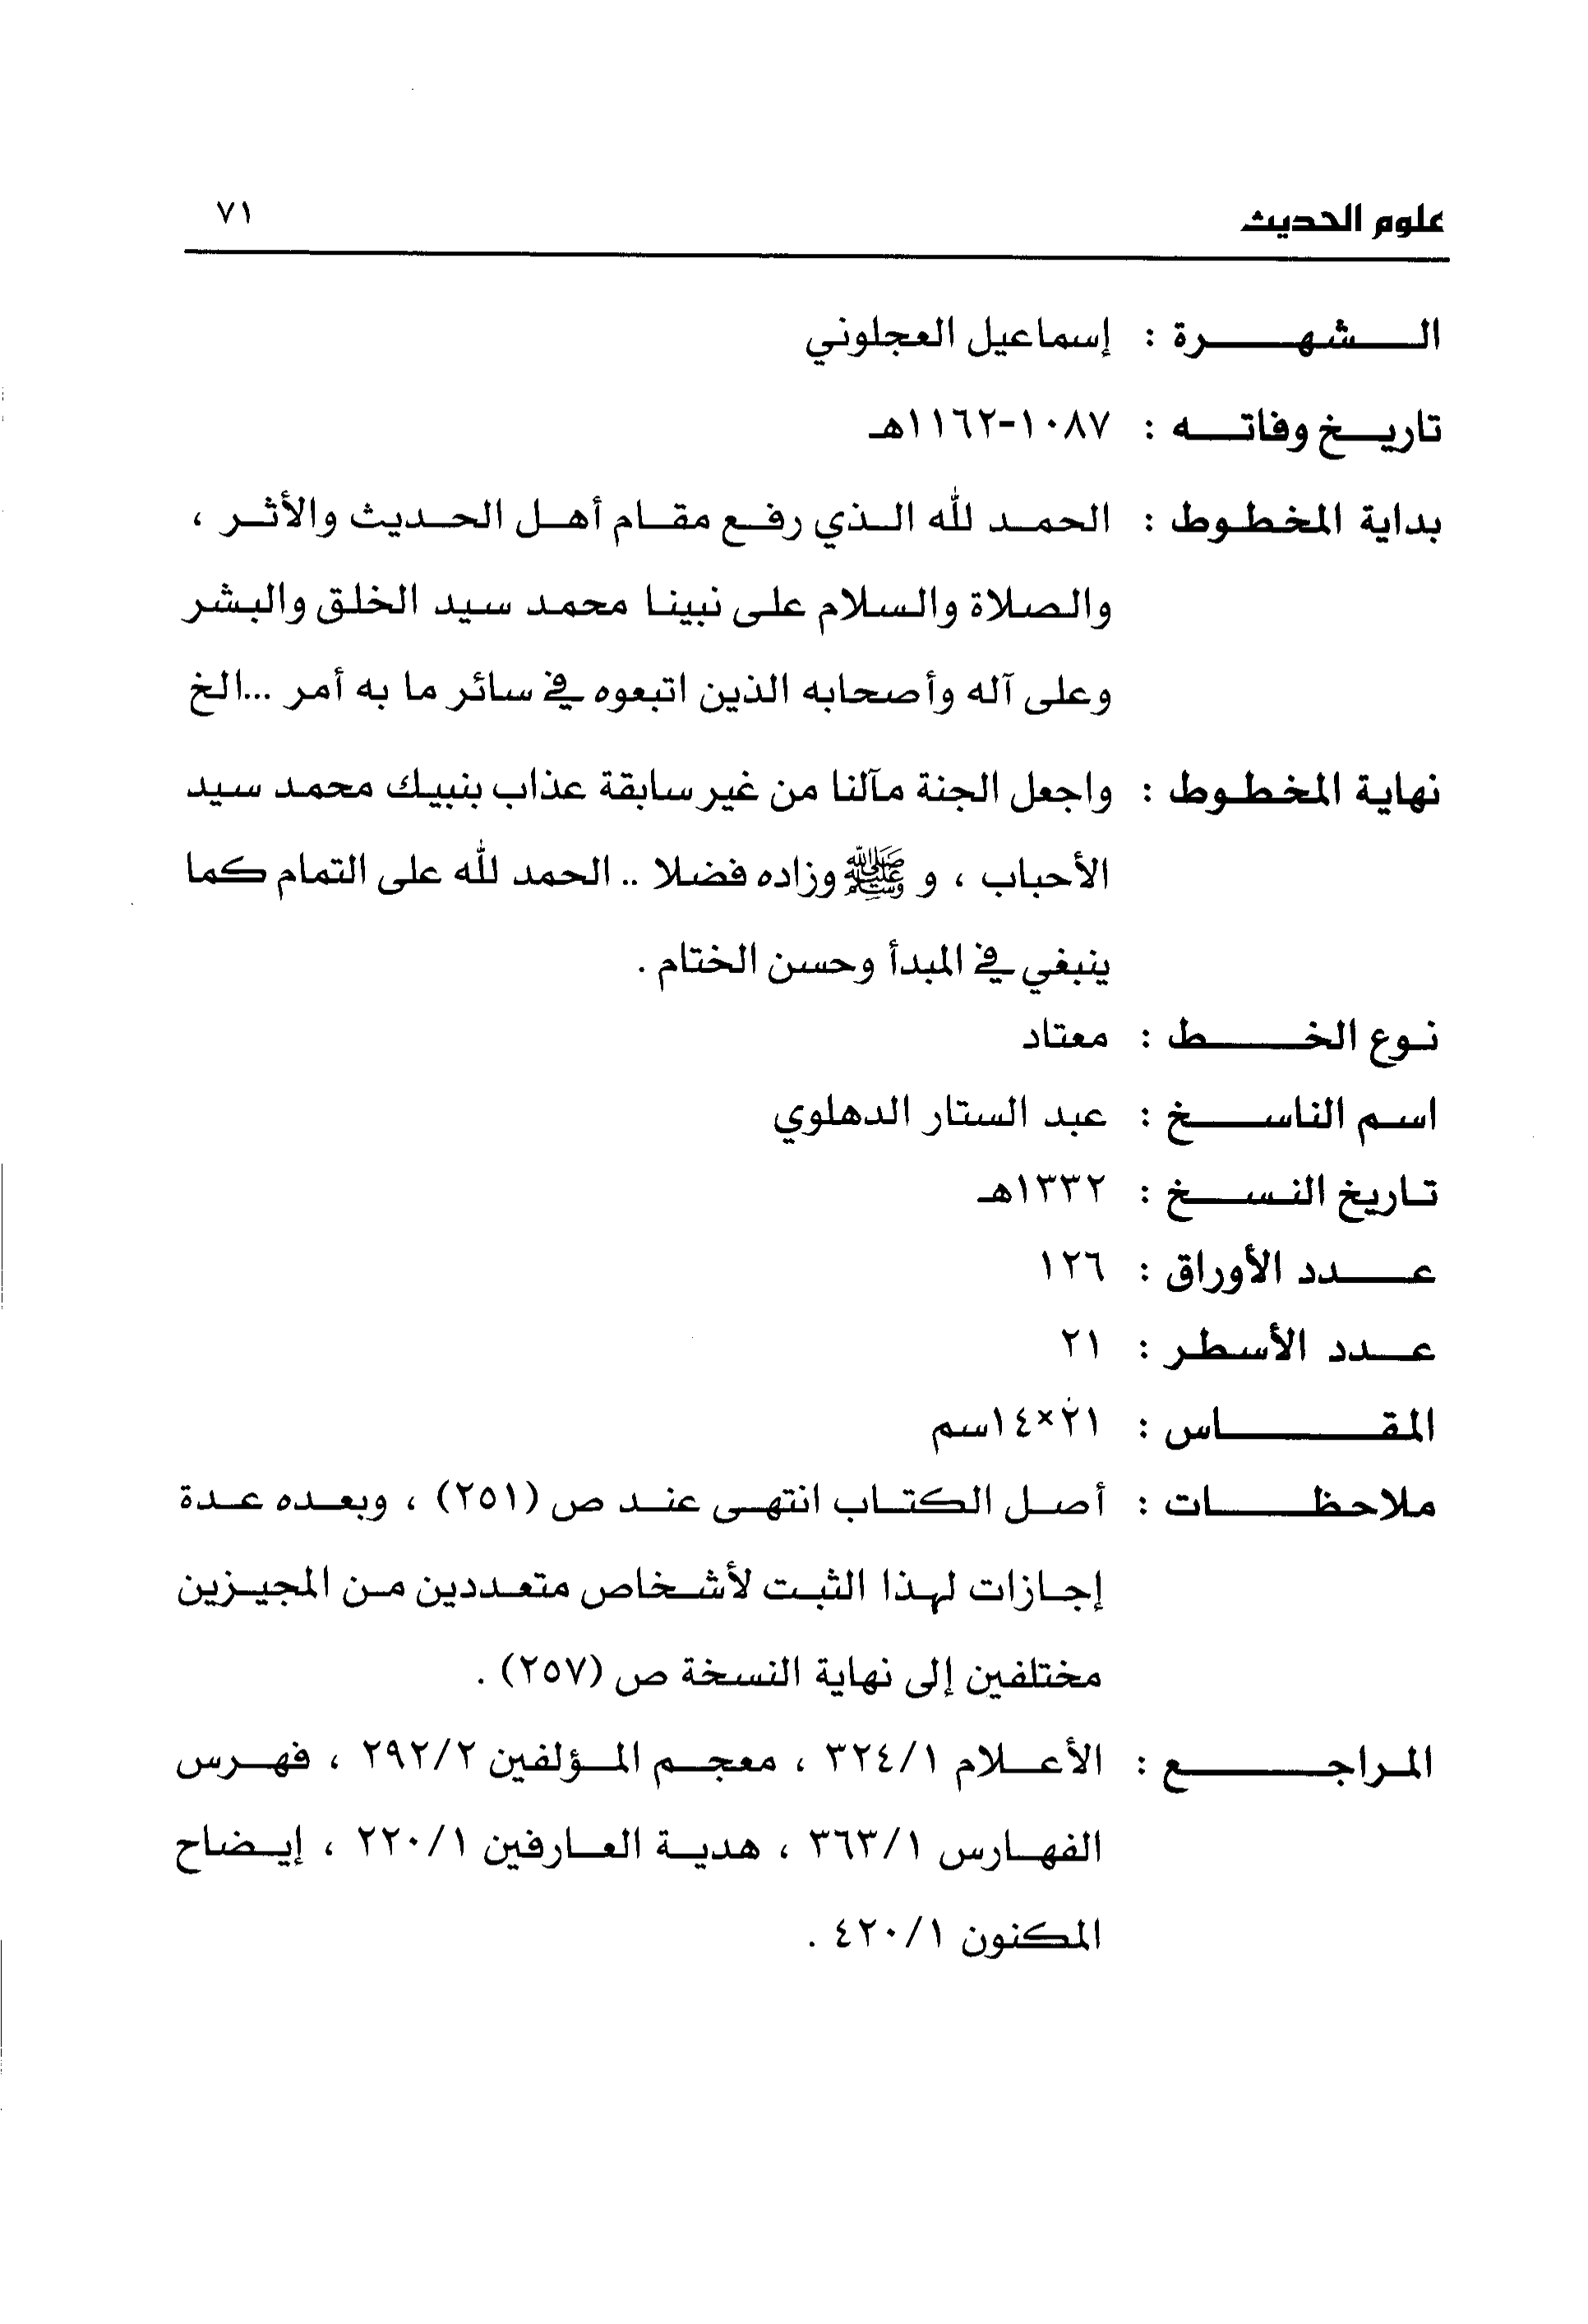 علوم الحديث ٧١
الشهرة : إسماعيل العجلوني
تاريخ وفاته : ١٠٨٧-١١٦٢هـ
بداية المخطوط : الحمد لله الذي رفع مقام أهل الحديث والأثر ،
والصلاة والسلام على نبينا محمد سيد الخلق والبشر
وعلى آله وأصحابه الذين اتبعوه في سائر ما به أمر ...الخ
نهاية المخطوط : واجعل الجنة مآلنا من غير سابقة عذاب بنبيك محمد سيد
الأحباب ، و ﷺ وزاده فضلا .. الحمد لله على التمام كما
ينبغي في المبدأ وحسن الختام .
نوع الخط : معتاد
اسم الناسخ : عبد الستار الدهلوي
تاريخ النسخ : ١٣٣٢هـ
عدد الأوراق : ١٢٦
عدد الأسطر : ٢١
المقاس : ٢١×١٤سم
ملاحظات : أصل الكتاب انتهى عند ص (٢٥١) ، وبعده عدة
إجازات لهذا الثبت لأشخاص متعددين من المجيزين
مختلفين إلى نهاية النسخة ص (٢٥٧) .
المراجع : الأعلام ٣٢٤/١ ، معجم المؤلفين ٢٩٢/٢ ، فهرس
الفهارس ٣٦٣/١ ، هدية العارفين ٢٢٠/١ ، إيضاح
المكنون ٤٢٠/١ .